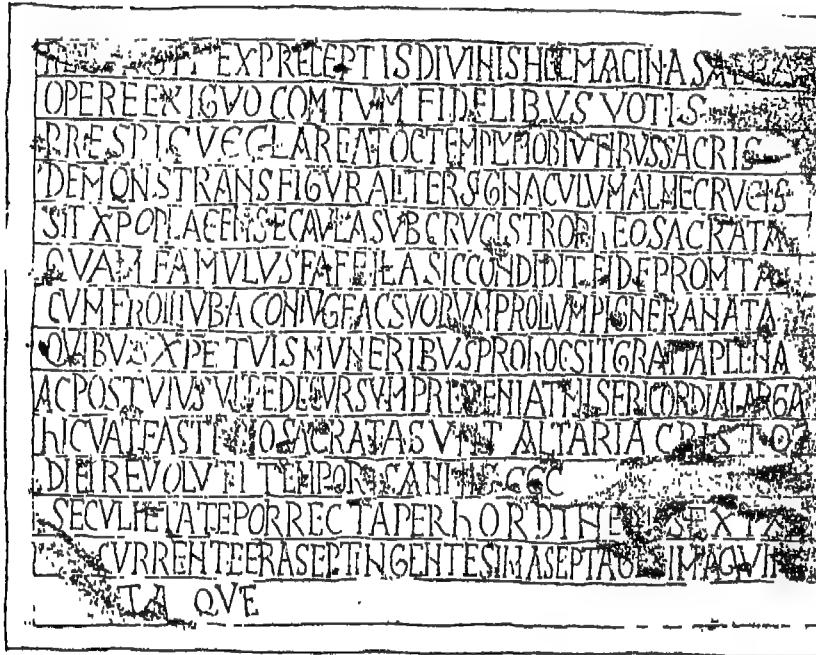 EX PRECEPTIS DIVINIS HEC MACINA SACRA
OPERE EXIGVO COMTVM FIDELIBVS VOTIS
PRESPICVE CLAREAT OC TEMPLVM OBTVTIBVS SACRIS
DEMONSTRANS FIGVRALITER SIGNACVLVM ALME CRVCIS
SIT XPO PLACENS EC AVLA SVB CRVCIS TROPHEO SACRATA
QVAM FAMVLVS FAFFILA SIC CONDIDIT FIDE PROMTA
CVM FROILIVBA CONIVGE AC SVORVM PROLIVM PIGNERA NATA
QVIBVS XPE TVIS MVNERIBVS PRO hOC SIT GRATIA PLENA
AC POST VIVS VITE DECVRSVM PREVENIAT MISERICORDIA LARGA
hIC VATE SACRATA SVNT ALTARIA CRISTO
DIEI REVOLVTI TEMPORIS ANNIS CCC
SECVLI ETATE PORRECTA PER hORDINEM SEXTA
CVRRENTE ERA SEPTINGENTESIMA SEPTAGESIMA QVIN
TA QVE